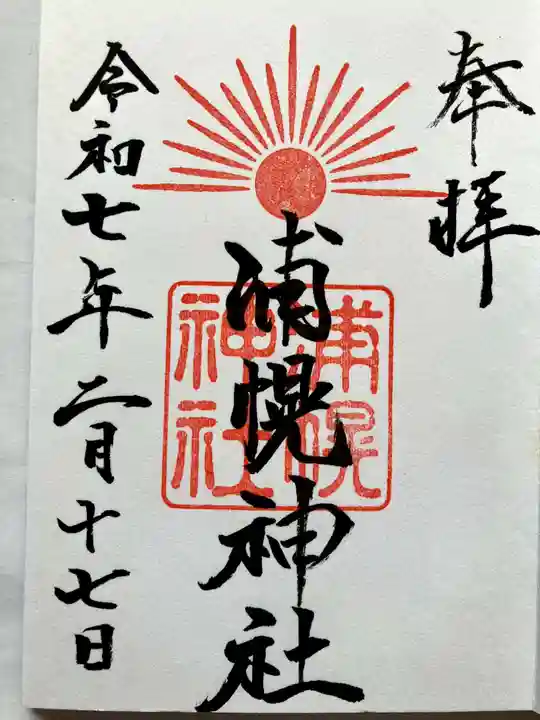 奉拝
浦幌神社
浦幌神社
令和七年二月十七日